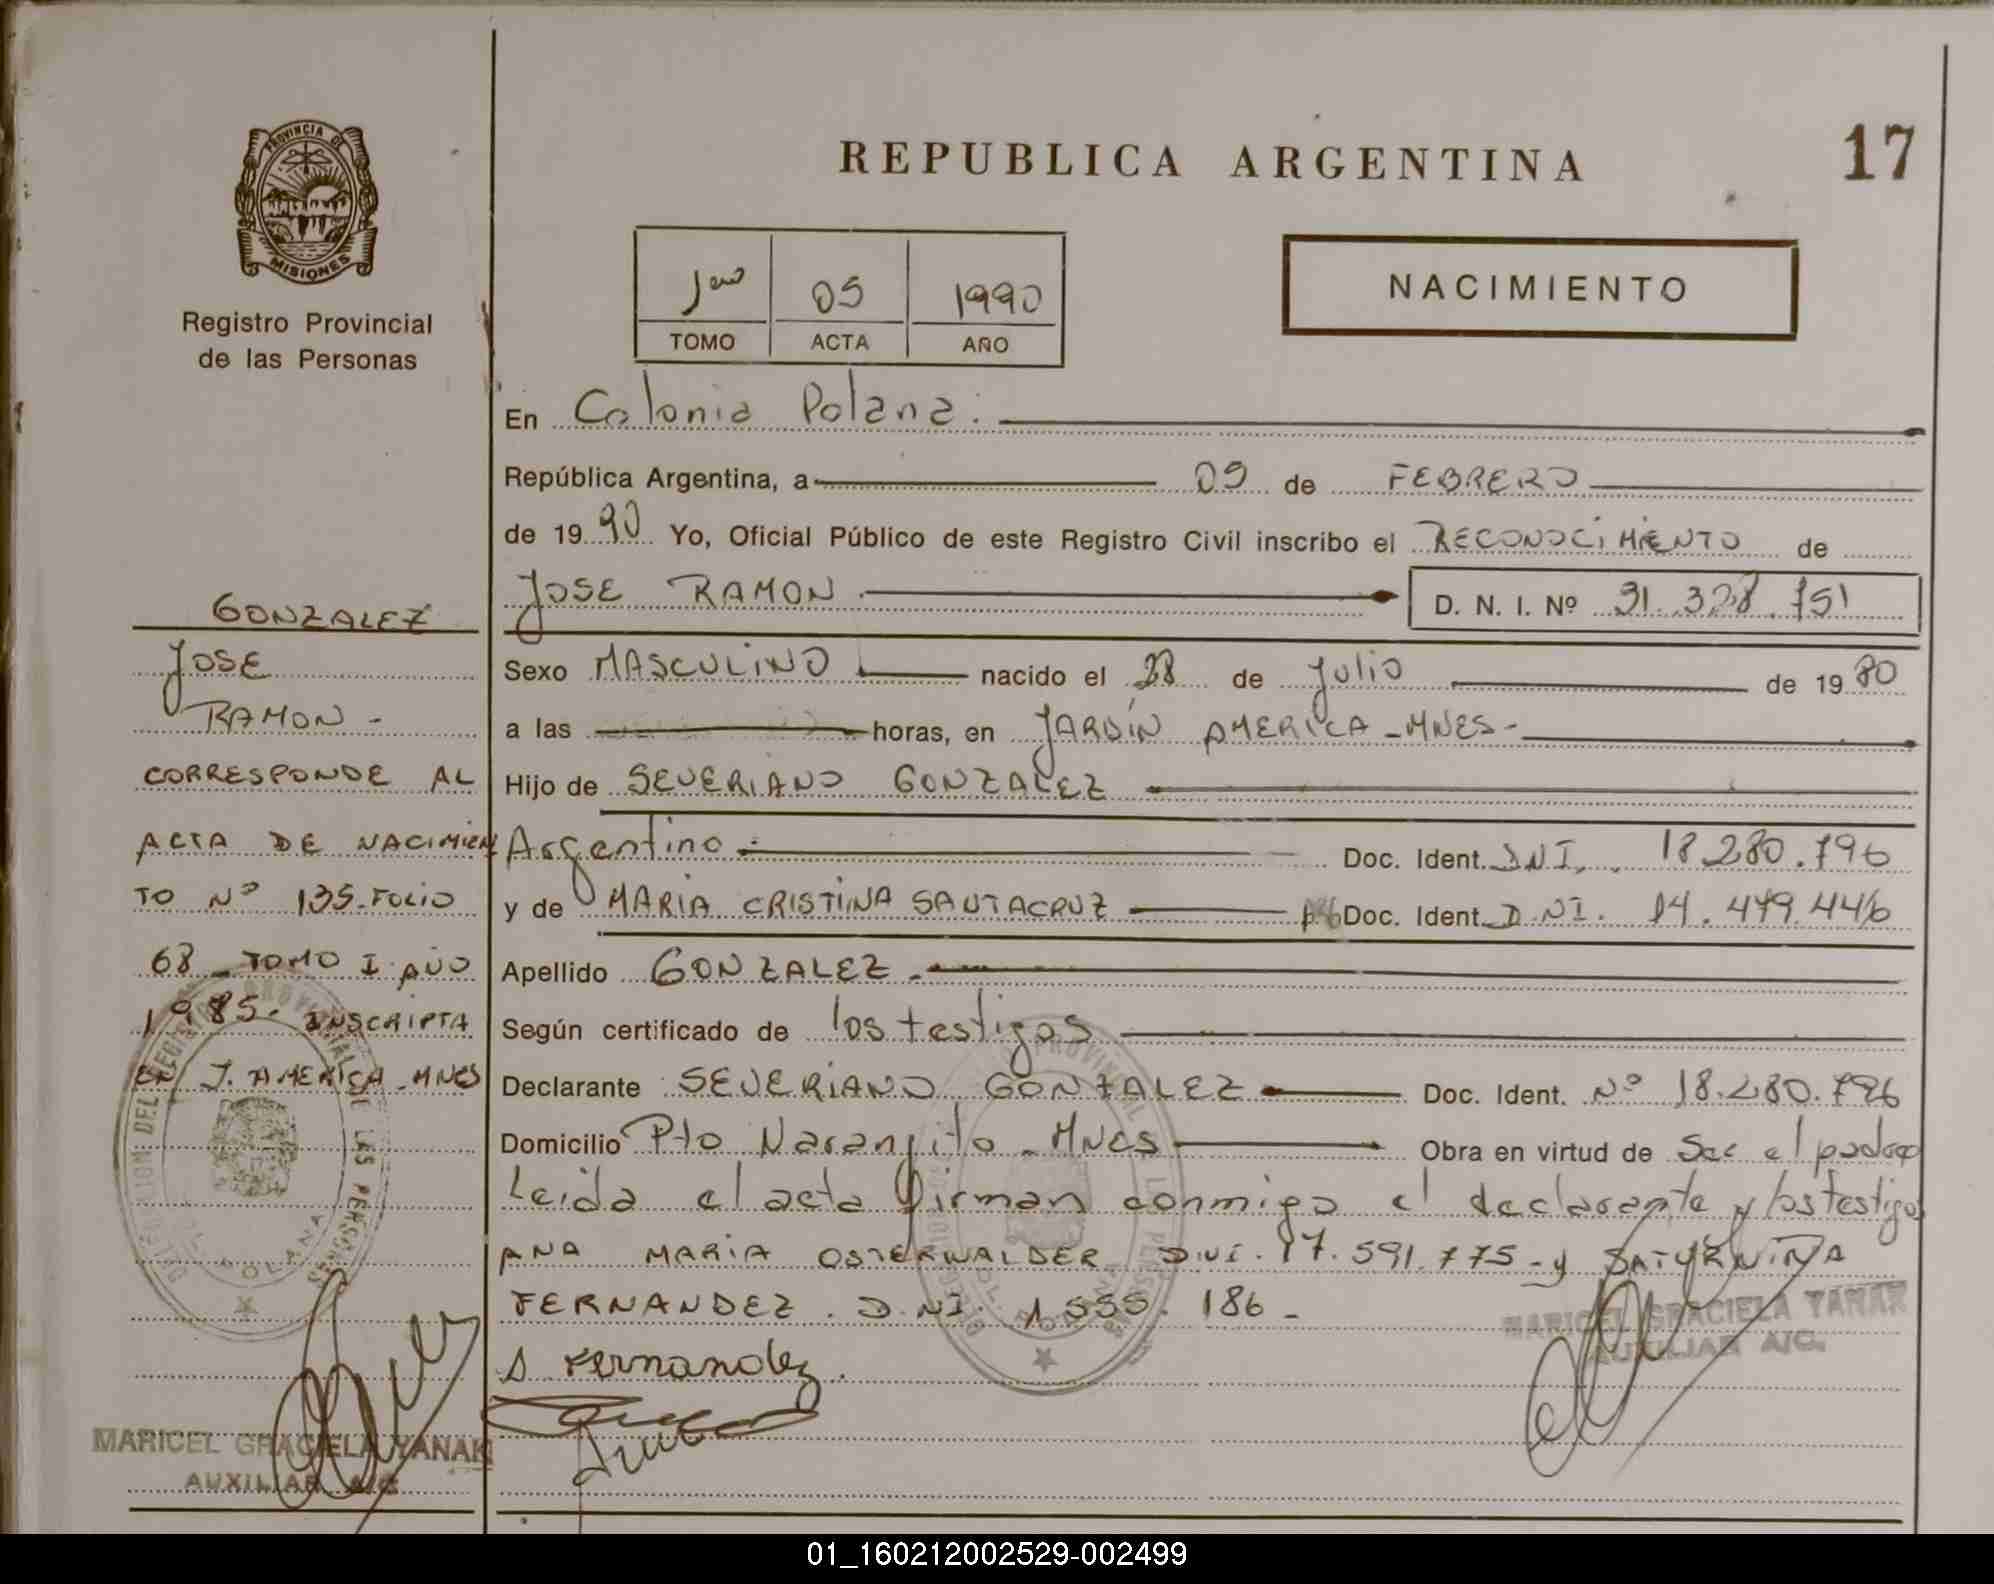 PROVINCIA DE
MISIONES
Registro Provincial
de las Personas
REPUBLICA ARGENTINA
17
05 1990
TOMO ACTA AÑO
NACIMIENTO
En Colonia Polana.
República Argentina, a 09 de FEBRERO
de 1990 Yo, Oficial Público de este Registro Civil inscribo el RECONOCIMIENTO de
JOSE RAMON D. N. I. Nº 31.328.751
Sexo MASCULINO nacido el 28 de Julio de 1980
a las horas, en JARDIN AMERICA - MNES -
Hijo de SEVERIANO GONZALEZ
Argentino Doc. Ident. DNI. 18.280.796
y de MARIA CRISTINA SANTACRUZ Doc. Ident. D.NI. 14.479.446
Apellido GONZALEZ -
Según certificado de los testigos
Declarante SEVERIANO GONZALEZ Doc. Ident. Nº 18.280.796
Domicilio Pto Naranjito - MNES Obra en virtud de Ser el padre
Leida el acta firman conmigo el declarante y los testigos
ANA MARIA OSTERWALDER DNI. 17.591.775 - y SATURNINA
FERNANDEZ. D.NI. 1.555.186 -
S Fernandez.
MARICEL GRACIELA YANAK
AUXILIAR A/C.
GONZALEZ
JOSE
RAMON -
CORRESPONDE AL
ACTA DE NACIMIEN
TO Nº 135 - FOLIO
68 - TOMO I AÑO
1985. INSCRIPTA
EN J. AMERICA - MNES
MARICEL GRACIELA YANAK
AUXILIAR A/C
01_160212002529-002499